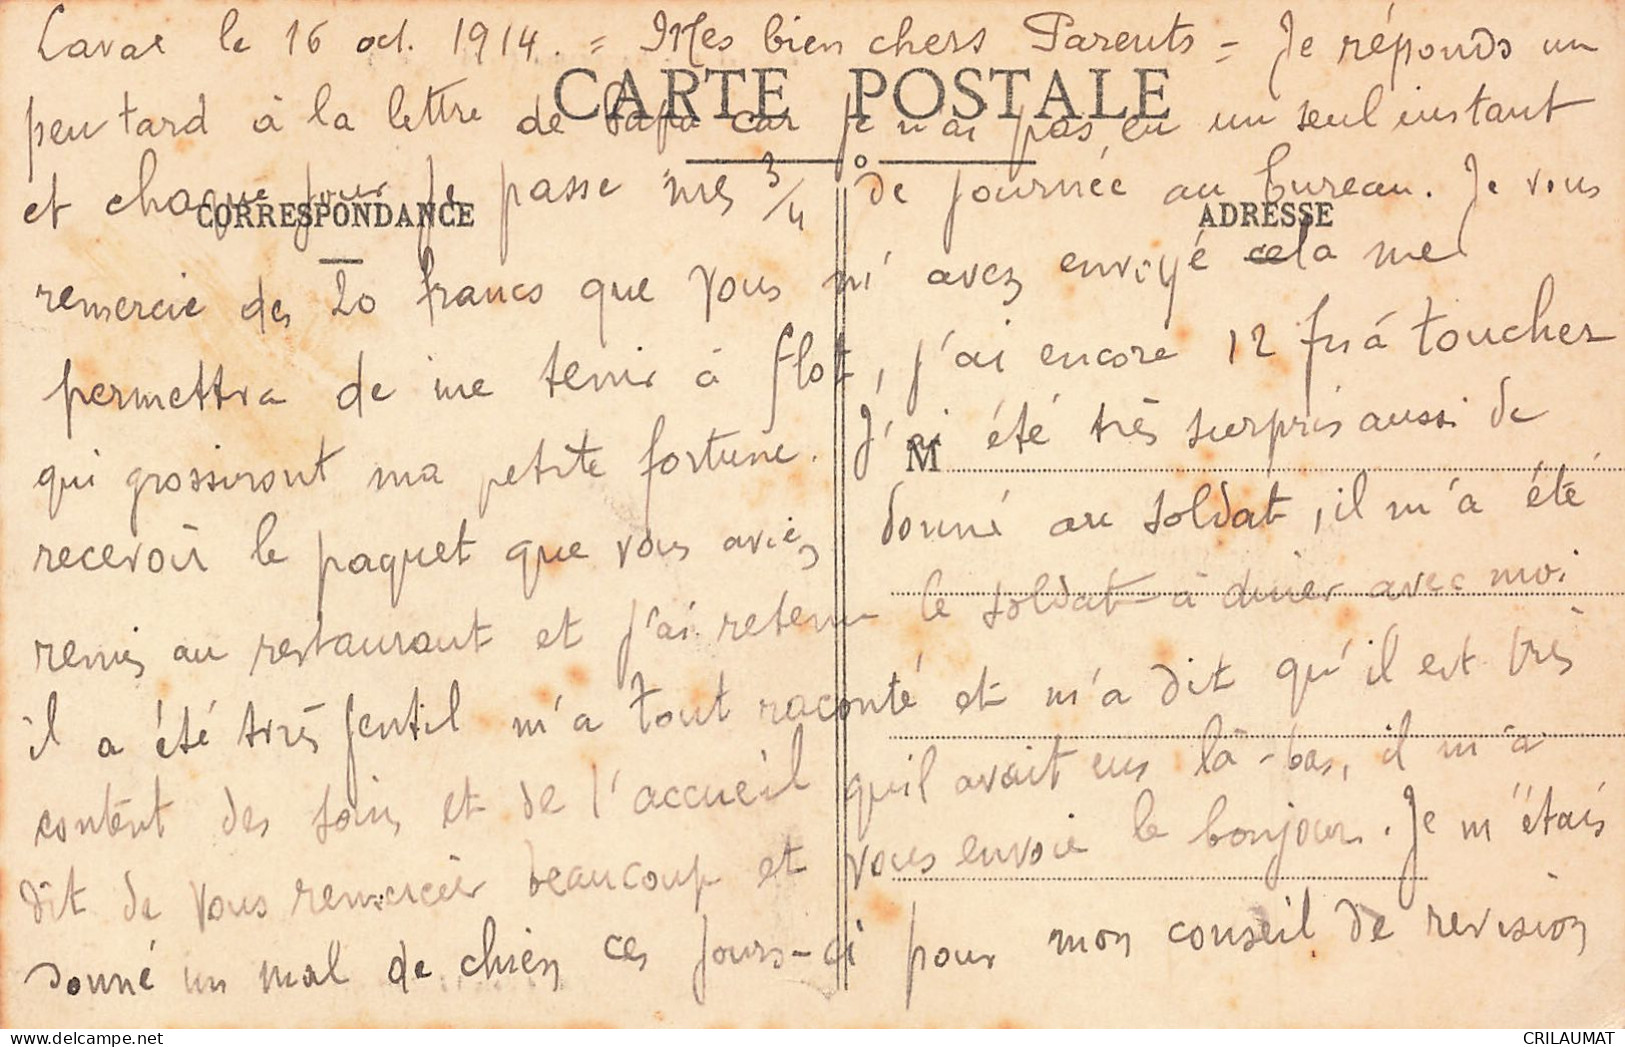 Laval le 16 oct. 1914. = Mes bien chers Parents = Je réponds un
CARTE POSTALE
peu tard à la lettre de Papa car je n'ai pas eu un seul instant
et chaque jour je passe mes 3/4 de journée au bureau. Je vous
CORRESPONDANCE
ADRESSE
remercie des 20 francs que vous m'avez envoyé cela me
permettra de me tenir à flot, j'ai encore 12 frs à toucher
qui grossiront ma petite fortune. J'ai été très surpris aussi de
M
recevoir le paquet que vous aviez donné au soldat, il m'a été
remis au restaurant et j'ai retenu le soldat à diner avec moi
il a été très gentil m'a tout raconté et m'a dit qu'il est très
content des soins et de l'accueil qu'il avait eus là-bas, il m'a
dit de vous remercier beaucoup et vous envoie le bonjour. Je m'étais
donné un mal de chien ces jours-ci pour mon conseil de revision
CRILAUMAT